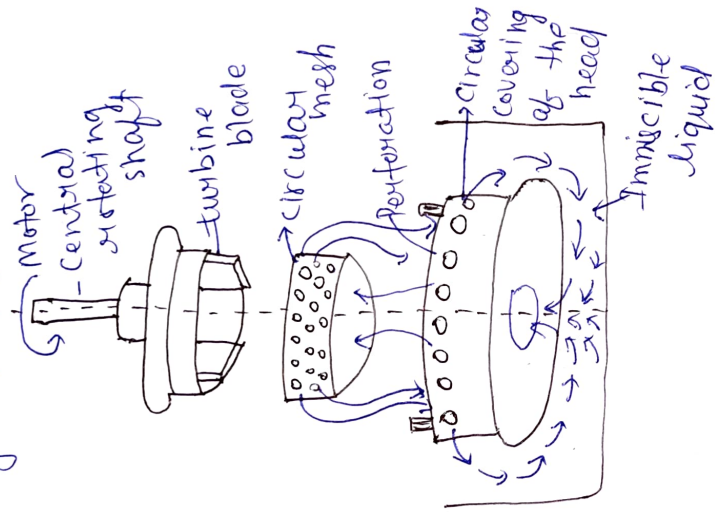 Motor
- Central
rotating
shaft
turbine
blade
circular
mesh
Perforation
circular
covering
of the
head
Immiscible
liquid